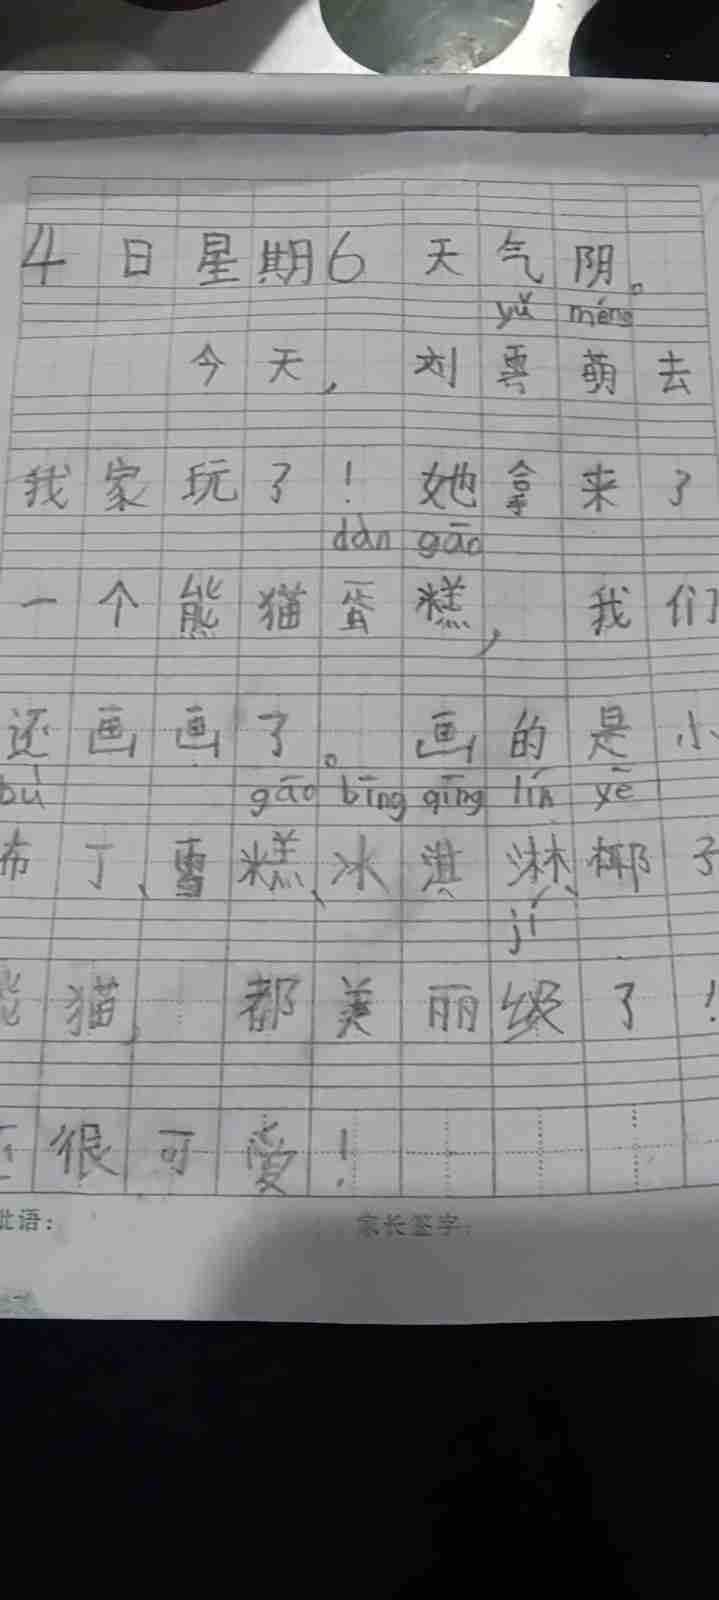 4日星期6天气阴。
yǔ méng
今天，刘雩萌去
我家玩了！她拿来了
dàn gāo
一个熊猫蛋糕，我们
还画画了。画的是小
bù gāo bīng qīng lín yē
布丁、雪糕、冰淇淋、椰子
熊猫，都美丽级了！
jí
还很可爱！
批语： 家长签字：